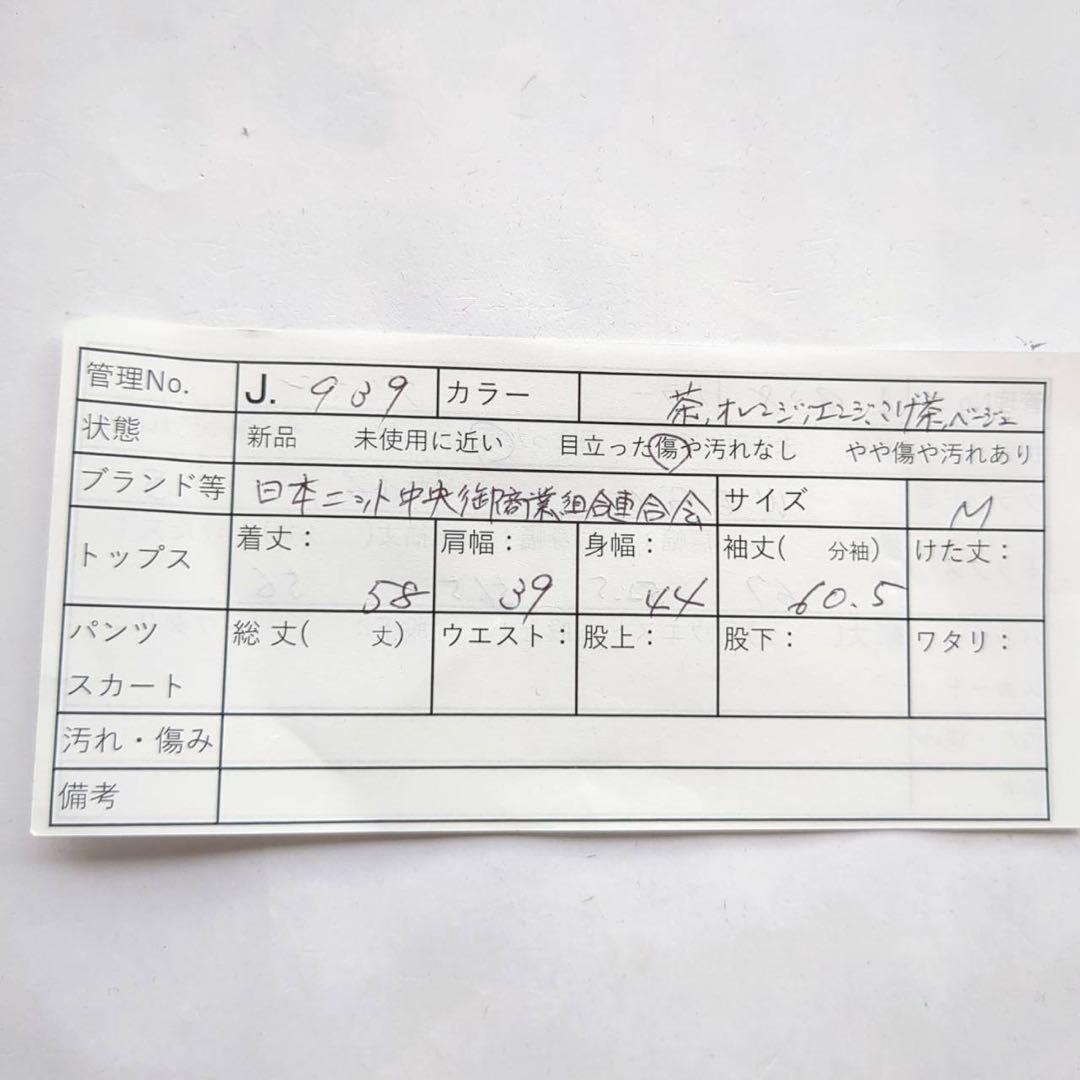 管理No. J. 939 カラー 茶,オレンジ,エンジ,こげ茶,ベージュ
状態 新品 未使用に近い 目立った傷や汚れなし やや傷や汚れあり
ブランド等 日本ニット中央卸商業組合連合会 サイズ M
トップス 着丈: 58 肩幅: 39 身幅: 44 袖丈( 分袖) 60.5 けた丈:
パンツ 総丈( 丈) ウエスト: 股上: 股下: ワタリ:
スカート
汚れ・傷み
備考